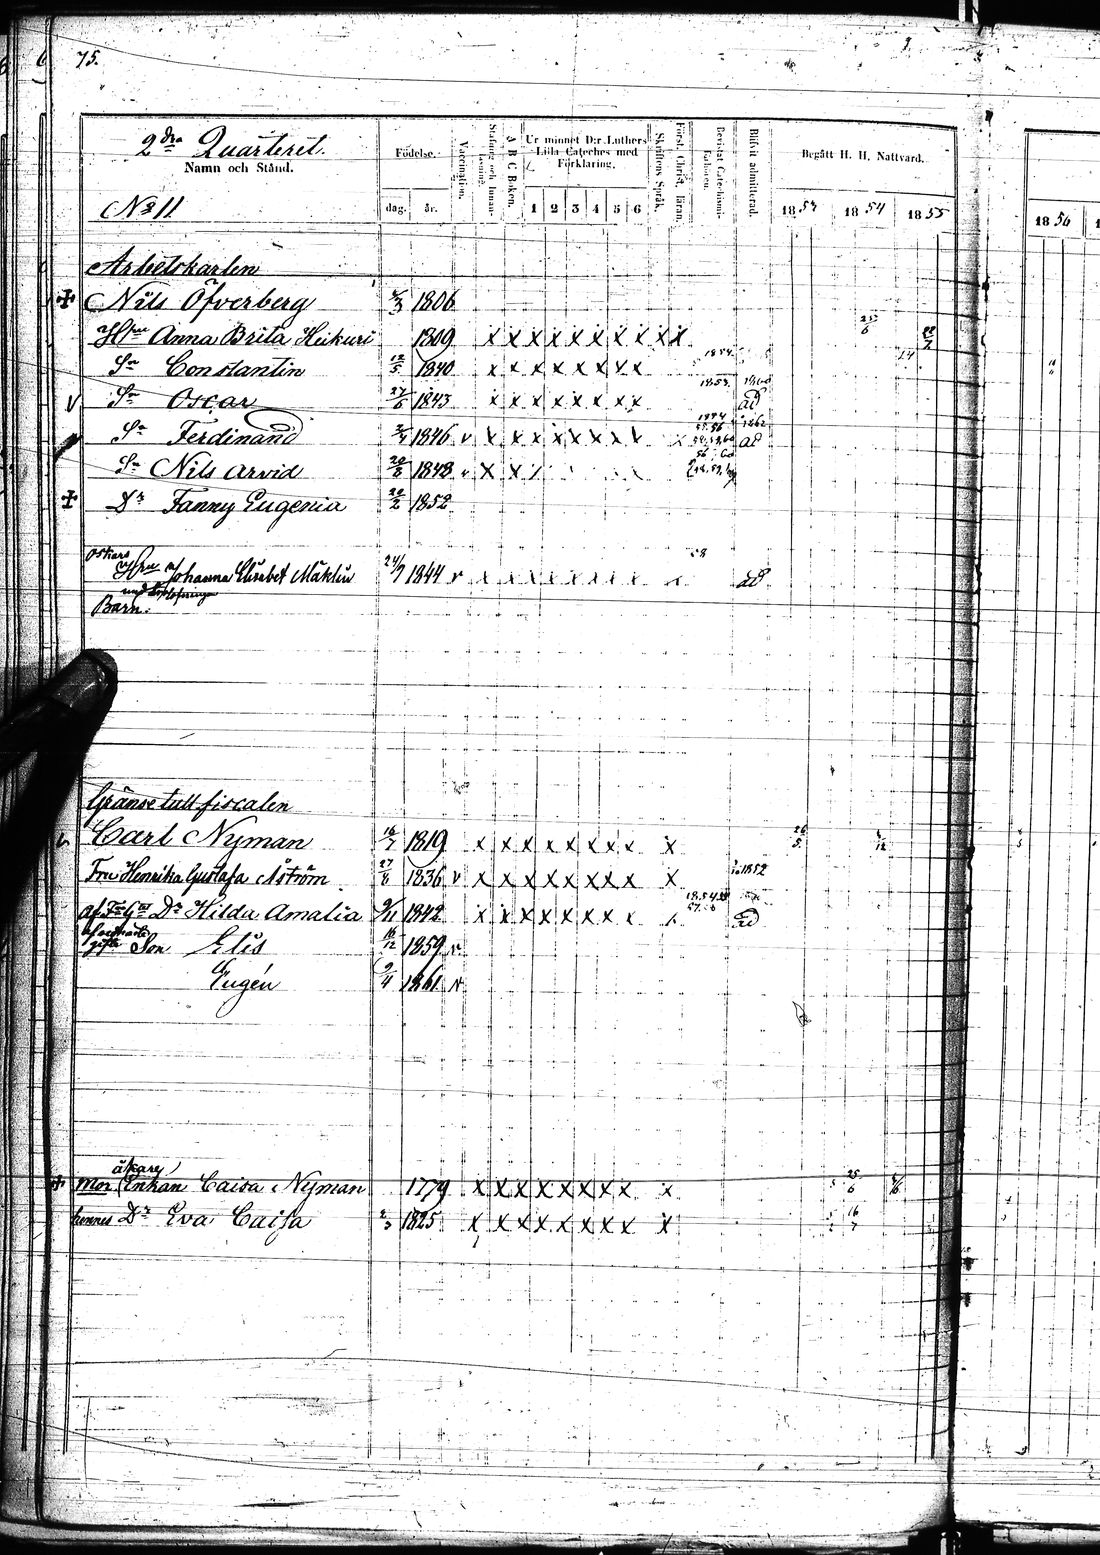 75.
2dra Quarteret.
Namn och Stånd.
Födelse.
Vaccination.
Stafning och Innanläsning.
A B C Boken.
Ur minnet D:r Luthers Lilla Cateches med Förklaring.
Skriftens Språk.
Först. Christ. läran.
Bevistat Catechismi-
Blifvit admitterad.
Begått H. H. Nattvard.
No 11
dag. år. 1 2 3 4 5 6 1853 1854 1855 1856
Arbetskarlen
Nils Öfverberg 1806
Hru Anna Brita Heikuri 1809 x x x x x x x x x x
Sn Constantin 12/5 1840 x x x x x x x x 1854
Sn Oscar 27/6 1843 x x x x x x x x 1853. ad
Sn Ferdinand 1846 v x x x x x x x x x 1862 ad
Sn Nils Arvid 20/8 1848 v x x
Dr Fanny Eugenia 20/2 1852
Oskars
Hru Johanna Elisabet Mäklin 24/7 1844 v x x x x x x x x x ad
Barn:
Gränse tull fiscalen
Carl Nyman 16/7 1819 x x x x x x x x x
Fru Henrika Gustafa Åström 27/8 1836 v x x x x x x x x x 1852
af Fru Gm Dr Hilda Amalia 9/11 1842 x x x x x x x x ad
gifte Son Elis 16/12 1859 v
Eugén 9/4 1861 v
åkare
Mor Enkan Caisa Nyman 1779 x x x x x x x x x 25/6
hennes Dr Eva Caisa 2/3 1825 x x x x x x x x x 16/7